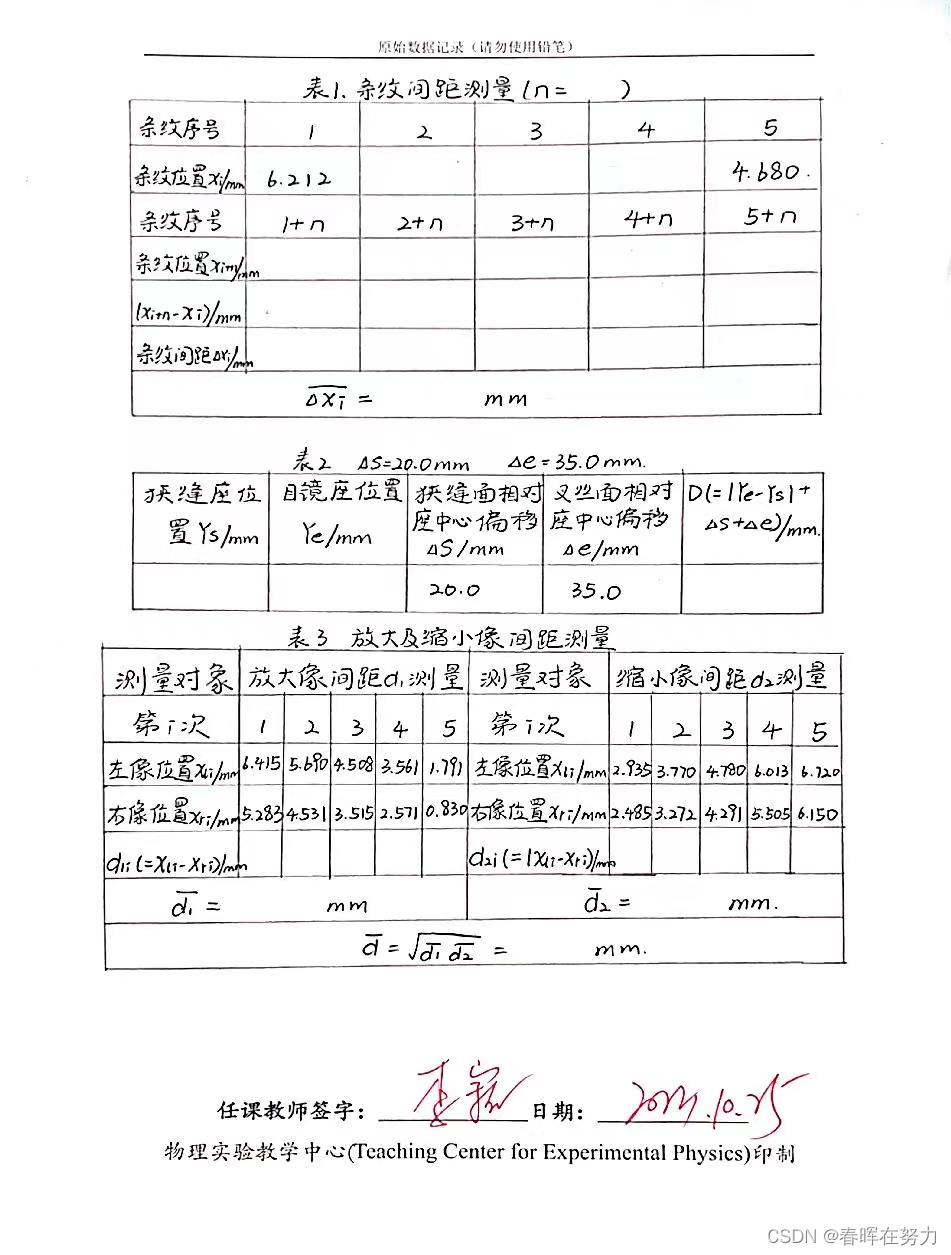 原始数据记录（请勿使用铅笔）
表1. 条纹间距测量(n=  )
条纹序号 1 2 3 4 5
条纹位置xi/mm 6.212 4.680.
条纹序号 1+n 2+n 3+n 4+n 5+n
条纹位置xi+n/mm
(xi+n-xi)/mm
条纹间距Δxi/mm
Δxi = mm
表2 ΔS=20.0mm Δe=35.0mm.
狭缝座位置Ys/mm 目镜座位置Ye/mm 狭缝面相对座中心偏移ΔS/mm 叉丝面相对座中心偏移Δe/mm D(=|Ye-Ys|+ΔS+Δe)/mm.
20.0 35.0
表3 放大及缩小像间距测量
测量对象 放大像间距d1测量 测量对象 缩小像间距d2测量
第i次 1 2 3 4 5 第i次 1 2 3 4 5
左像位置xli/mm 6.415 5.690 4.508 3.561 1.791 左像位置xli/mm 2.935 3.770 4.780 6.013 6.720
右像位置xri/mm 5.283 4.531 3.515 2.571 0.830 右像位置xri/mm 2.485 3.272 4.291 5.505 6.150
d1i(=xli-xri)/mm d2i(=|xli-xri)/mm
d̅1 = mm d̅2 = mm.
d̅ = √d̅1 d̅2 = mm.
任课教师签字： 日期：
物理实验教学中心(Teaching Center for Experimental Physics)印制
CSDN @春晖在努力